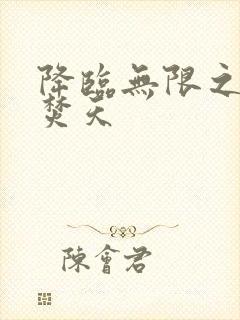 降臨無限之
焚天
陳會君